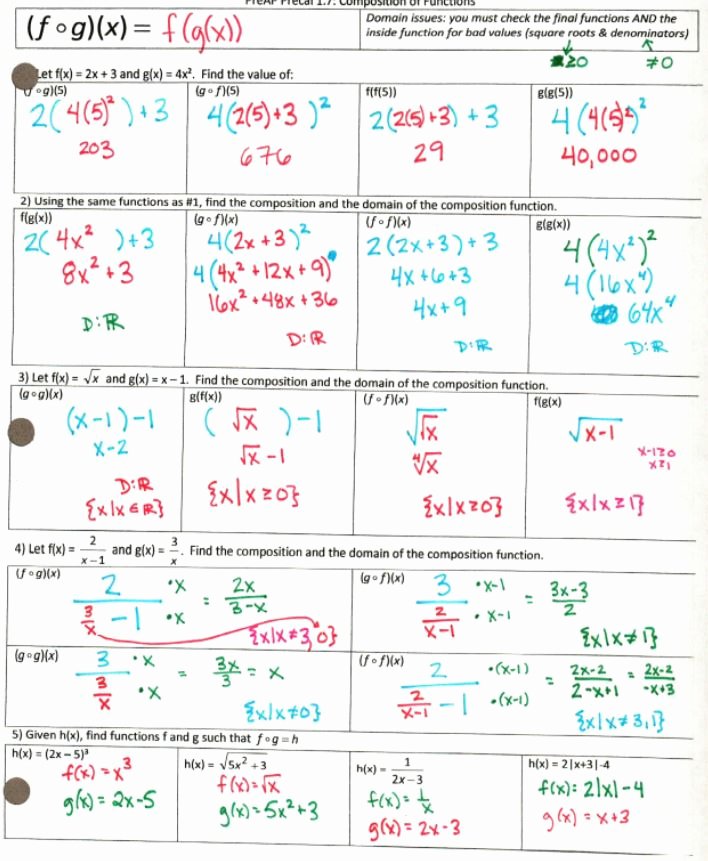 PreAP Precal 1.7: Composition of Functions
(f ∘ g)(x) = f(g(x))
Domain issues: you must check the final functions AND the
inside function for bad values (square roots & denominators)
≥0 ≠0
Let f(x) = 2x + 3 and g(x) = 4x². Find the value of:
∘g)(5)
2(4(5)²)+3
203
(g∘f)(5)
4(2(5)+3)²
676
f(f(5))
2(2(5)+3)+3
29
g(g(5))
4(4(5)²)²
40,000
2) Using the same functions as #1, find the composition and the domain of the composition function.
f(g(x))
2(4x²)+3
8x²+3
D: ℝ
(g∘f)(x)
4(2x+3)²
4(4x²+12x+9)
16x²+48x+36
D: ℝ
(f∘f)(x)
2(2x+3)+3
4x+6+3
4x+9
D: ℝ
g(g(x))
4(4x²)²
4(16x⁴)
64x⁴
D: ℝ
3) Let f(x) = √x and g(x) = x − 1. Find the composition and the domain of the composition function.
(g∘g)(x)
(x-1)-1
x-2
D: ℝ
{x|x∈ℝ}
g(f(x))
(√x)-1
√x -1
{x|x≥0}
(f∘f)(x)
√√x
⁴√x
{x|x≥0}
f(g(x)
√x-1
x-1≥0
x≥1
{x|x≥1}
4) Let f(x) = 2/(x−1) and g(x) = 3/x. Find the composition and the domain of the composition function.
(f∘g)(x)
2/(3/x -1) •x/•x = 2x/(3-x)
{x|x≠3,0}
(g∘f)(x)
3/(2/(x-1)) •x-1/•x-1 = (3x-3)/2
{x|x≠1}
(g∘g)(x)
3/(3/x) •x/•x = 3x/3 = x
{x|x≠0}
(f∘f)(x)
2/(2/(x-1) -1) •(x-1)/•(x-1) = (2x-2)/(2-x+1) = (2x-2)/(-x+3)
{x|x≠3,1}
5) Given h(x), find functions f and g such that f∘g=h
h(x) = (2x − 5)³
f(x) = x³
g(x) = 2x-5
h(x) = √5x² + 3
f(x)=√x
g(x)=5x²+3
h(x) = 1/(2x−3)
f(x)= 1/x
g(x)= 2x-3
h(x) = 2|x+3|-4
f(x): 2|x|-4
g(x) = x+3